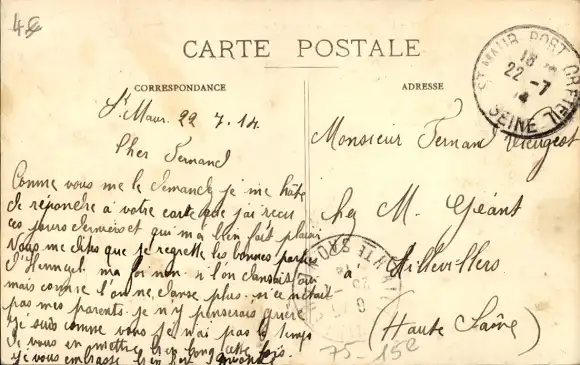 4
CARTE POSTALE
CORRESPONDANCE
ADRESSE
ST MAUR PORT CRETEIL
18
22 -7
14
SEINE
St Maur 22 7 14
Cher Fernand
Comme vous me le demandez je me hâte
de reponche à votre carte que j'ai recu
ces jours derniers et qui m'a bien fait plaisir
Vous me dites que je regrette les bonnes parties
ma foi non si l'on dansait oui
mais comme l'on ne danse plus si ce n'était
pas mes parents je n'y penserais guère
Je suis comme vous je n'ai pas le temps
de vous en mettre bien long cette fois.
Je vous embrasse bien fort
Monsieur Fernand Peugeot
chez M. Géant
à Aillevillers
(Haute Saône)
HTE SAONE
75-15e